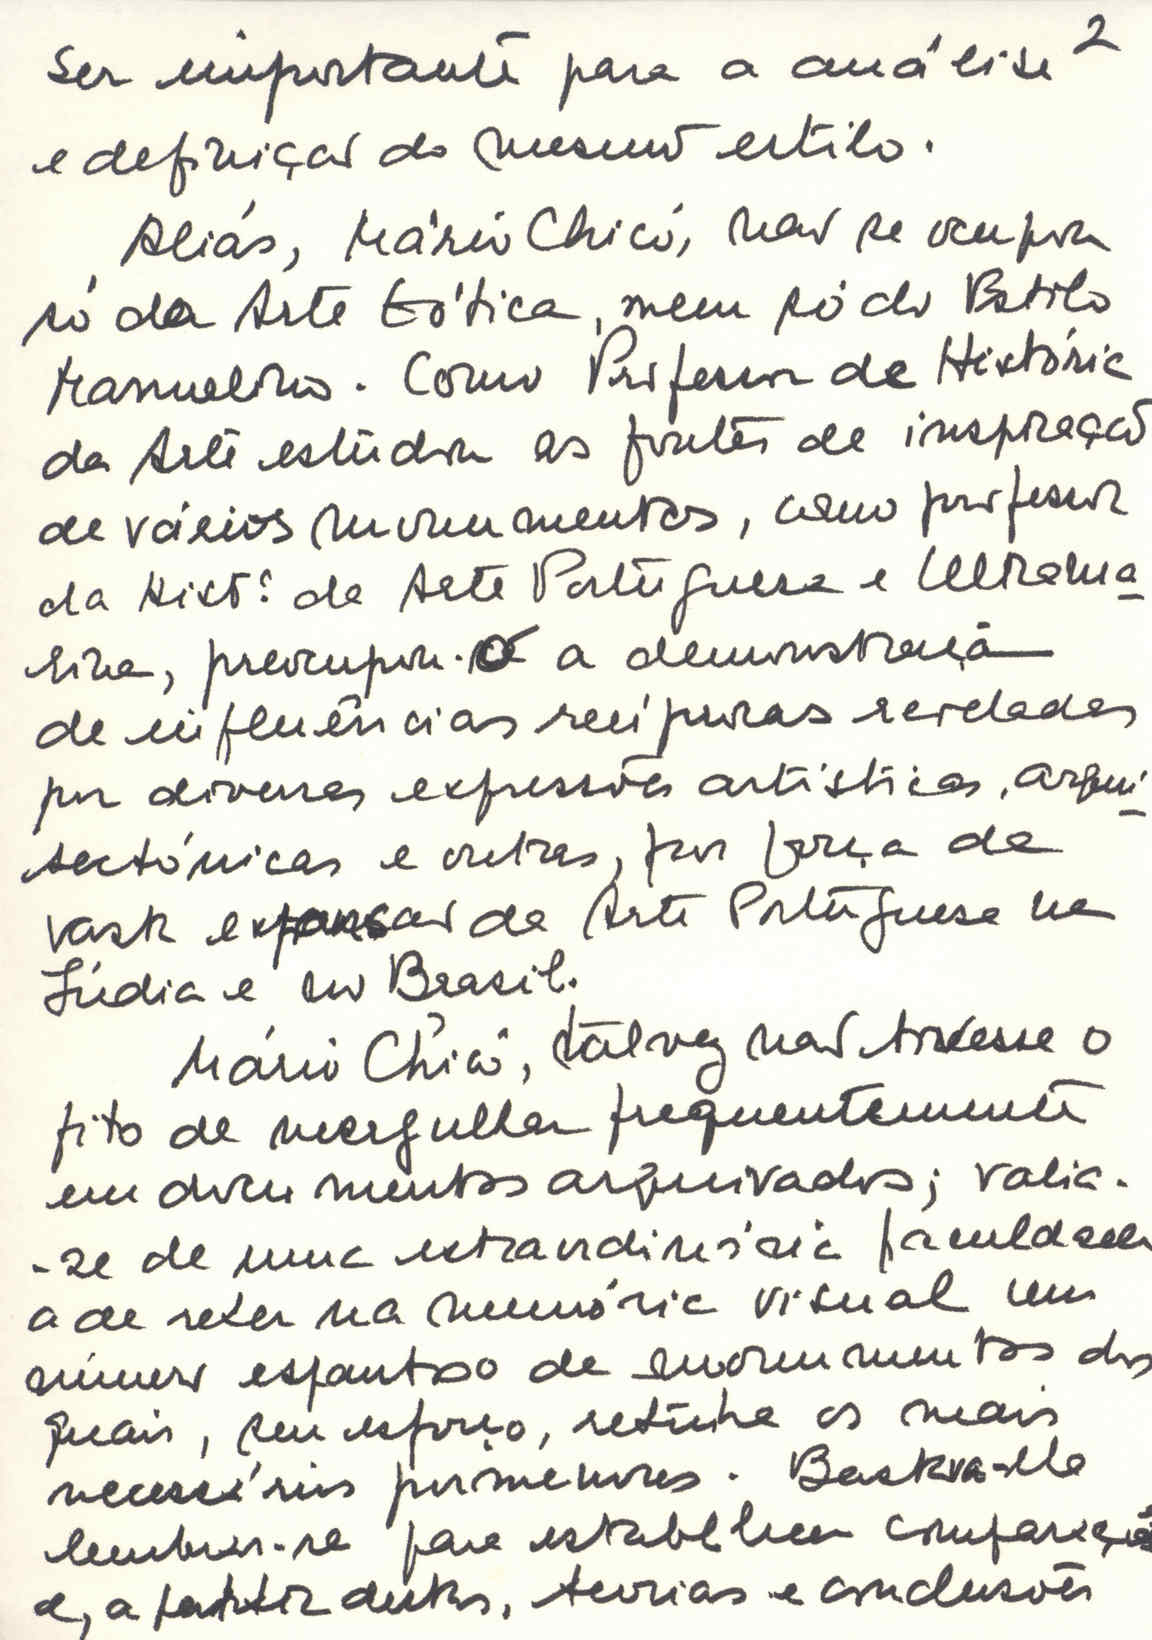 2
ser importante para a análise
e definição do mesmo estilo.
Aliás, Mário Chicó, não se ocupou
só da Arte Gótica, nem só do Estilo
Manuelino. Como Professor de História
da Arte estudou as fontes de inspiração
de vários monumentos, como professor
da Histª da Arte Portuguesa e Ultrama
rina, preocupou-o a demonstração
de influências recíprocas reveladas
por diversas expressões artísticas, arqui
tectónicas e outras, por força da
vasta expansão da Arte Portuguesa na
Índia e no Brasil.
Mário Chicó, talvez não tivesse o
fito de mergulhar frequentemente
em documentos arquivados; valia-
-se de uma extraordinária faculdade
a de reter na memória visual um
número espantoso de monumentos dos
quais, sem esforço, retinha os mais
necessários pormenores. Bastava-lhe
lembrar-se para estabelecer comparações
e, a partir destas, teorias e conclusões